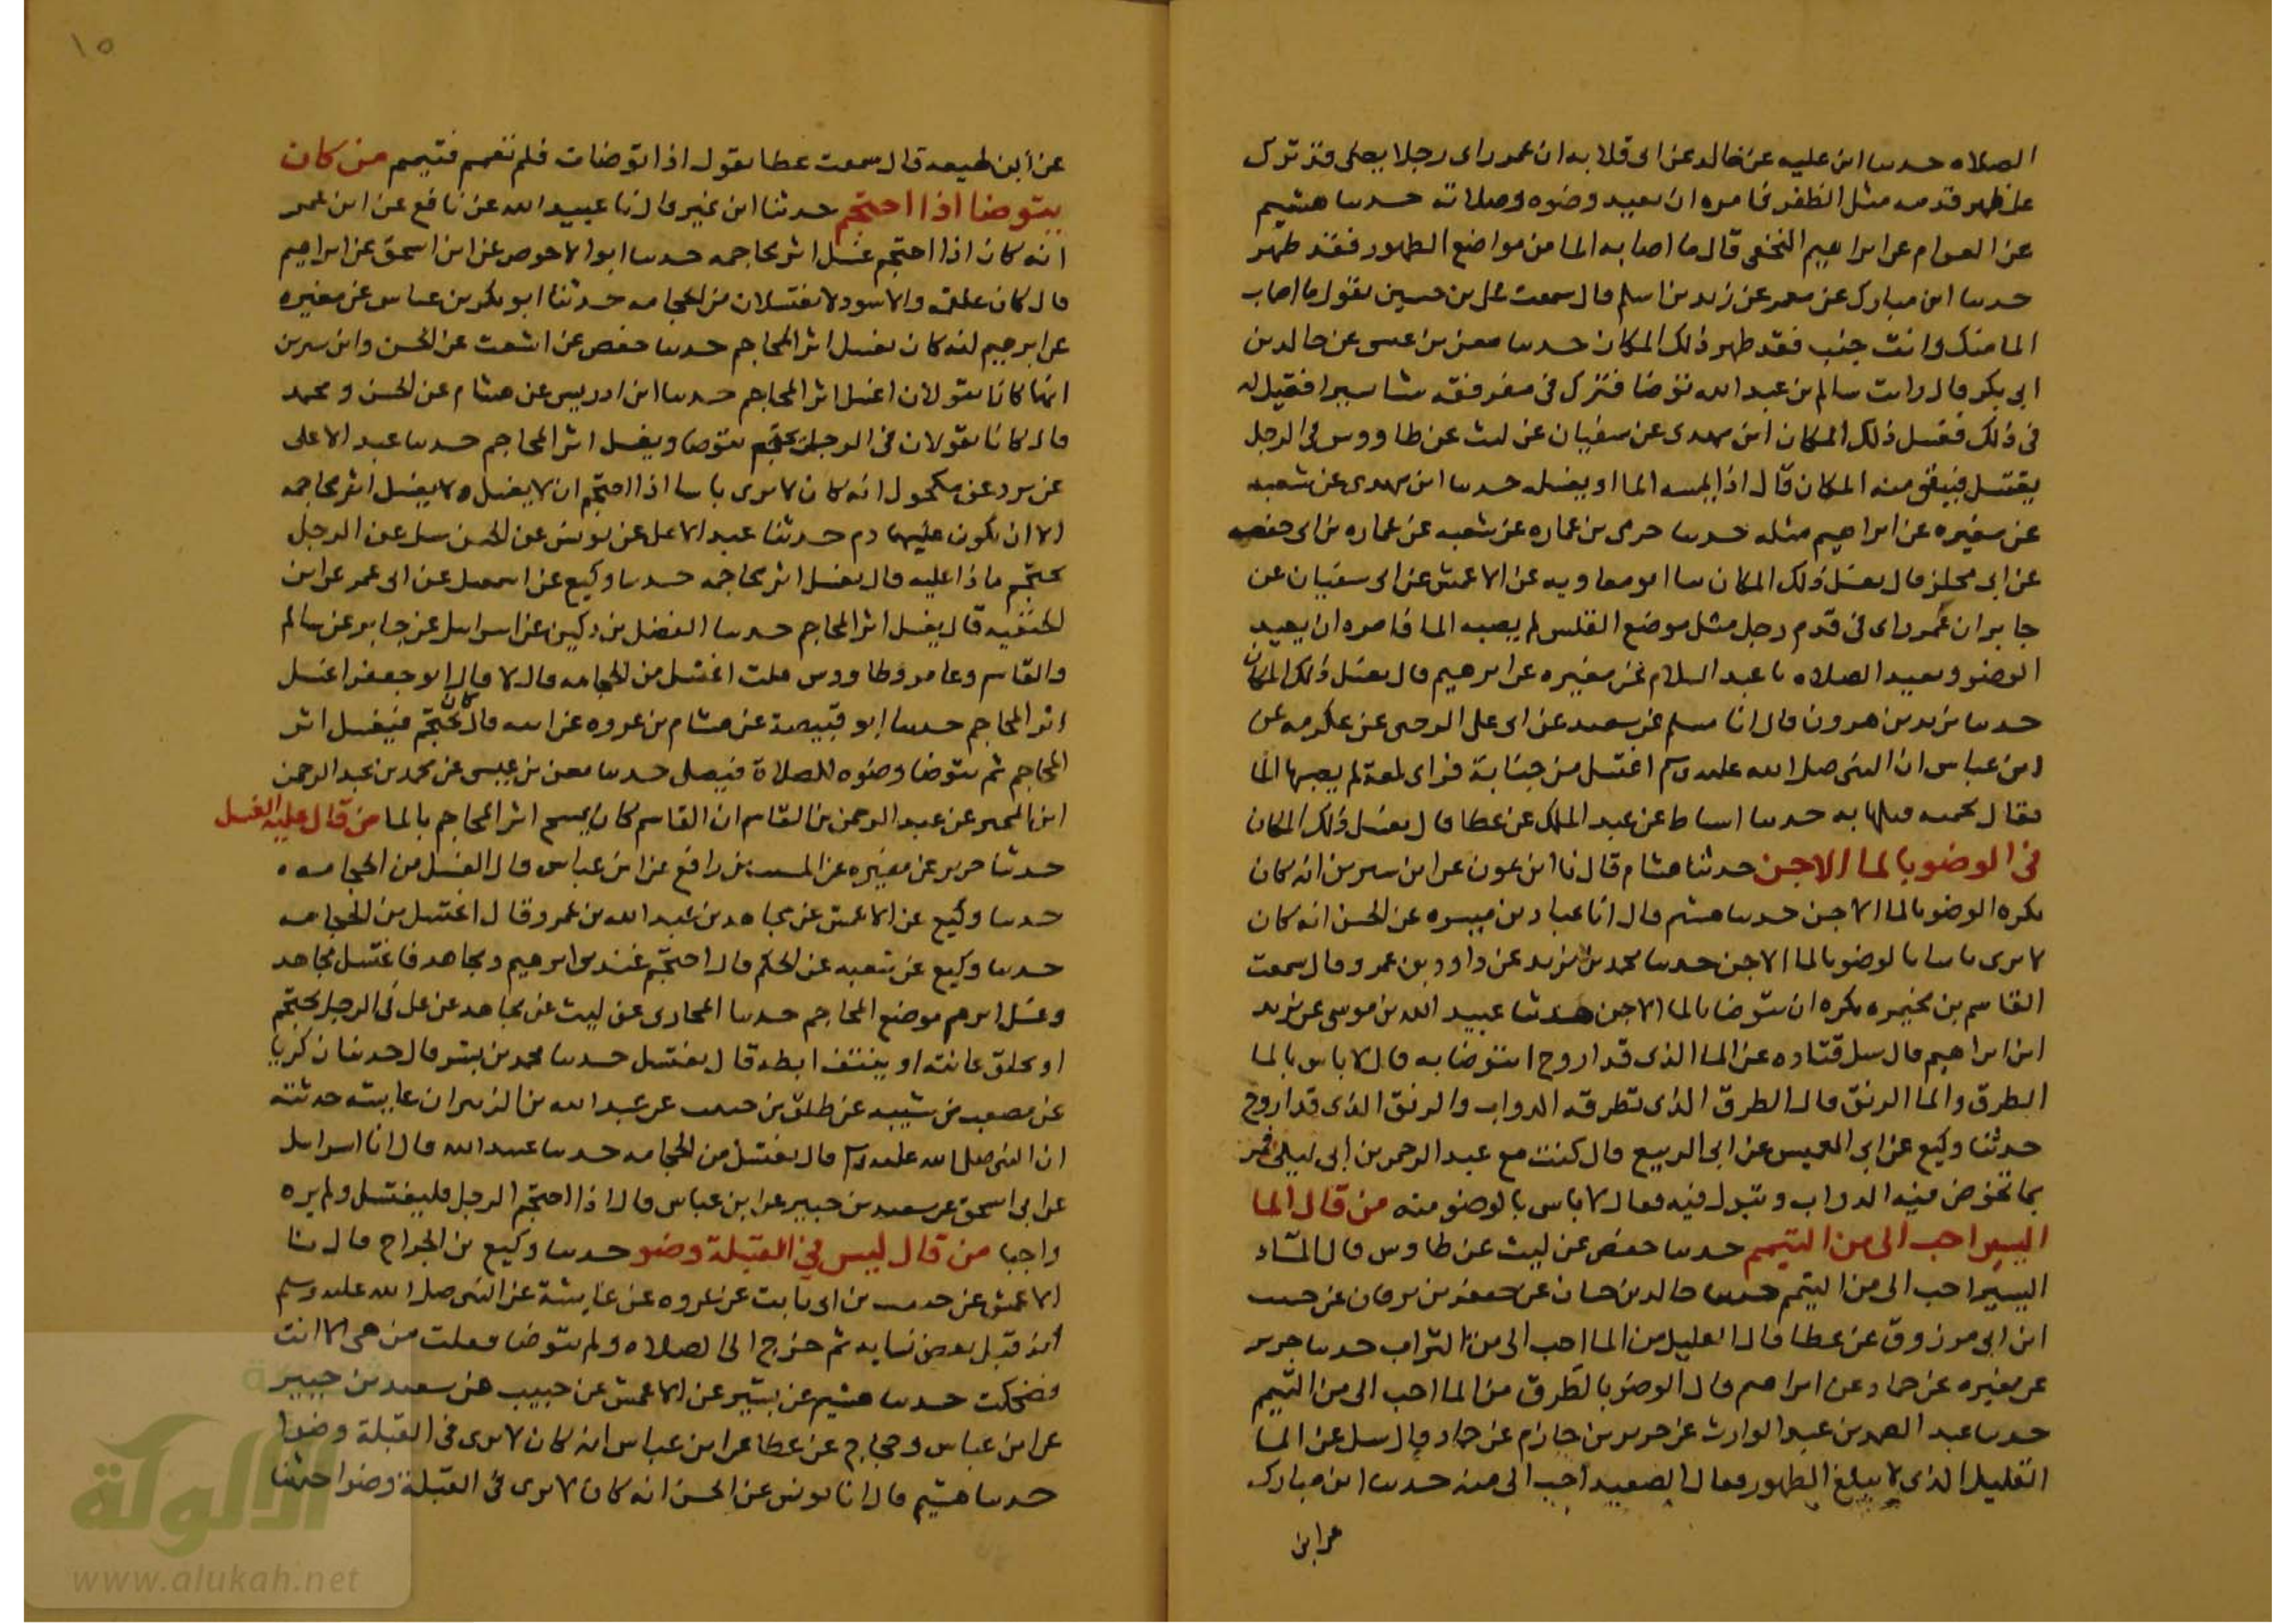 الصلاه حدثنا ابن عليه عن خالد عن ابى قلابه ان عمر راى رجلا يصلى قد ترك
على ظهر قدمه مثل الظفر فامره ان يعيد وضوه وصلاته حدثنا هشيم
عن العوام عن ابراهيم النخعى قال ما اصابه الما من مواضع الطهور فقد طهر
حدثنا ابن مبارك عن معمر عن زيد بن اسلم قال سمعت على بن حسين يقول ما اصاب
الما منك وانت جنب فقد طهر ذلك المكان حدثنا معن بن عيسى عن خالد بن
ابى بكر قال رايت سالم بن عبد الله توضا فترك فى مرفقه شيا يسيرا فقيل له
فى ذلك فغسل ذلك المكان ابن مهدى عن سفيان عن ليث عن طاووس فى الرجل
يغتسل فيبقى منه المكان قال اذا يمسه الما او يغسله حدثنا ابن مهدى عن شعبه
عن مغيره عن ابراهيم مثله حدثنا حرمى بن عماره عن شعبه عن عماره بن ابى حفصه
عن ابى مجلز قال يغسل ذلك المكان نا ابو معاويه عن الاعمش عن ابى سفيان عن
جابر ان عمر راى فى قدم رجل مثل موضع الفلس لم يصبه الما فامره ان يعيد
الوضو ويعيد الصلاه نا عبد السلام عن مغيره عن ابرهيم قال يغسل ذلك المكان
حدثنا يزيد بن هرون قال انا مسلم بن سعيد عن ابى على الرحبى عن عكرمه عن
ابن عباس ان النبى صلى الله عليه وسلم اغتسل من جنابة فراى لمعة لم يصبها الما
فقال بجمته فبلها به حدثنا اسباط عن عبد الملك عن عطا قال يغسل ذلك المكان
فى الوضو بالما الاجن حدثنا هشام قال نا ابن عون عن ابن سيرين انه كان
يكره الوضو بالما الاجن حدثنا هشيم قال انا عباد بن ميسره عن الحسن انه كان
لا يرى باسا بالوضو بالما الاجن حدثنا محمد بن يزيد عن داود بن عمرو قال سمعت
القاسم بن مخيمره يكره ان يتوضا بالما الاجن حدثنا عبيد الله بن موسى عن يزيد
ابن ابراهيم قال سيل قتاده عن الما الذى قد اروح ايتوضا به قال لا باس بالما
الطرق والما الرنق قال الطرق الذى تطرقه الدواب والرنق الذى قد اروح
حدثنا وكيع عن ابى العميس عن ابى الربيع قال كنت مع عبد الرحمن بن ابى ليلى فمر
بما تخوض فيه الدواب وتبول فيه فقال لا باس بالوضو منه من قال الما
اليسير احب الى من التيمم حدثنا حفص عن ليث عن طاوس قال الماء
اليسير احب الى من التيمم حدثنا خالد بن حيان عن جعفر بن برقان عن حبيب
ابن ابى مرزوق عن عطا قال القليل من الما احب الى من التراب حدثنا جرير
عن مغيره عن حماد عن ابراهيم قال الوضو بالطرق من الما احب الى من التيمم
حدثنا عبد الصمد بن عبد الوارث عن جرير بن حازم عن حماد قال سيل عن الما
القليل الذى لا يبلغ الطهور فقال الصعيد احب الى منه حدثنا ابن مبارك
عن ابن
١٥
عن ابن لهيعه قال سمعت عطا يقول اذا توضات فلم تعمم فتيمم من كان
يتوضا اذا احتجم حدثنا ابن نمير قال نا عبيد الله عن نافع عن ابن عمر
انه كان اذا احتجم غسل اثر محاجمه حدثنا ابو الاحوص عن ابى اسحق عن ابراهيم
قال كان علقمه والاسود لا يغتسلان من الحجامه حدثنا ابو بكر بن عياش عن مغيره
عن ابرهيم انه كان يغسل اثر المحاجم حدثنا حفص عن اشعث عن الحسن وابن سيرين
انهما كانا يقولان اغسل اثر المحاجم حدثنا ابن ادريس عن هشام عن الحسن ومحمد
قال كانا يقولان فى الرجل يحتجم يتوضا ويغسل اثر المحاجم حدثنا عبد الاعلى
عن برد عن مكحول انه كان لا يرى باسا اذا احتجم ان لا يغسل ولا يغسل اثر محاجمه
الا ان يكون عليهما دم حدثنا عبد الاعلى عن يونس عن الحسن سيل عن الرجل
يحتجم ماذا عليه قال يغسل اثر محاجمه حدثنا وكيع عن اسمعيل عن ابى عمر عن ابن
الحنفيه قال يغسل اثر المحاجم حدثنا الفضل بن دكين عن اسرائيل عن جابر عن سالم
والقاسم وعامر وطاووس قلت اغتسل من الحجامه قال لا قال ابو جعفر اغسل
اثر المحاجم حدثنا ابو قبيصة عن هشام بن عروه عن ابيه قال كان يحتجم فيغسل اثر
المحاجم ثم يتوضا وضوه للصلاة فيصلى حدثنا معن بن عيسى عن محمد بن عبد الرحمن
ابن المجبر عن عبد الرحمن بن القاسم ان القاسم كان يمسح اثر المحاجم بالما من قال عليه الغسل
حدثنا جرير عن مغيره عن المسيب بن رافع عن ابن عباس قال الغسل من الحجامه ه
حدثنا وكيع عن الاعمش عن مجاهد بن عبد الله بن عمرو قال اغتسل من الحجامه
حدثنا وكيع عن شعبه عن الحكم قال احتجم عندى ابرهيم ومجاهد فاغتسل مجاهد
وغسل ابرهيم موضع المحاجم حدثنا المحاربى عن ليث عن مجاهد عن على فى الرجل يحتجم
او يحلق عانته او ينتف ابطه قال يغتسل حدثنا محمد بن بشر قال حدثنا زكريا
عن مصعب بن شيبه عن طلق بن حبيب عن عبد الله بن الزبير ان عايشه حدثته
ان النبى صلى الله عليه وسلم قال يغتسل من الحجامه حدثنا عبيد الله قال انا اسرائيل
عن ابى اسحق عن سعيد بن جبير عن ابن عباس قال اذا احتجم الرجل فليغتسل ولم يره
واجبا من قال ليس فى القبلة وضو حدثنا وكيع بن الجراح قال نا
الاعمش عن حبيب بن ابى ثابت عن عروه عن عايشة عن النبى صلى الله عليه وسلم
انه قبل بعض نسايه ثم خرج الى الصلاه ولم يتوضا فقلت من هى الا انت
فضحكت حدثنا هشيم عن بشير عن الاعمش عن حبيب عن سعيد بن جبير
عن ابن عباس وحجاج عن عطا عن ابن عباس انه كان لا يرى فى القبلة وضوا
حدثنا هشيم قال انا يونس عن الحسن انه كان لا يرى فى القبلة وضوا حدثنا
شبكة
الألوكة
www.alukah.net